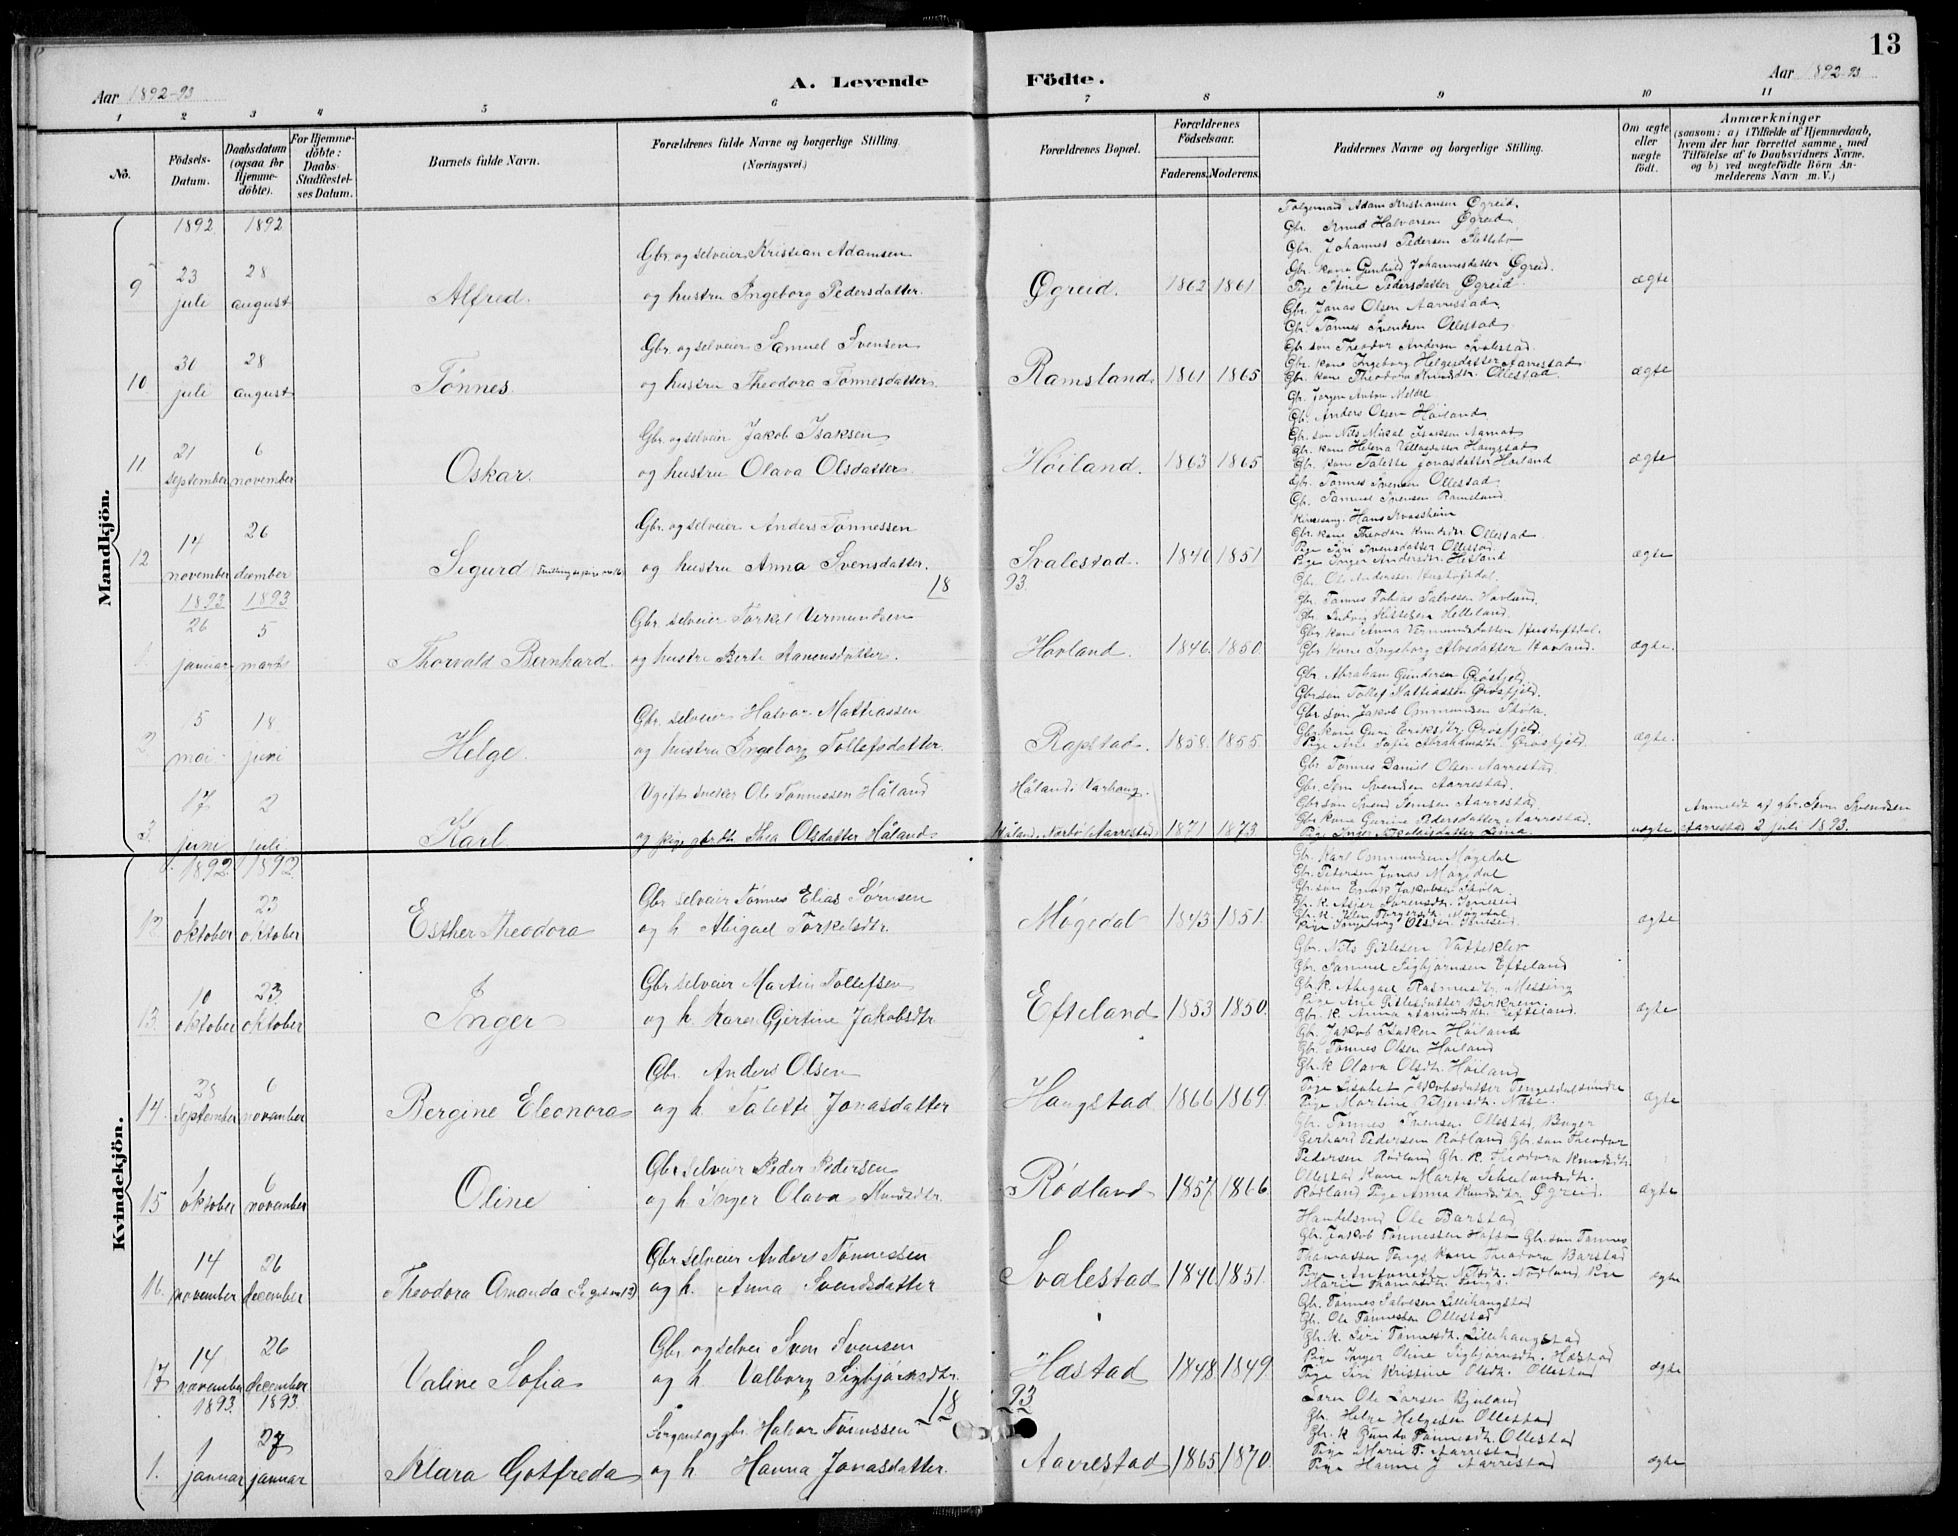 13
Aar 1892-93
A. Levende Födte.
Aar 1892-93
1 2 3 4 5 6 7 8 9 10 11
No.
Födsels-Datum.
Daabsdatum (ogsaa for Hjemme-döbte).
For Hjemme-döbte: Daabs Stadfæstel-ses Datum.
Barnets fulde Navn.
Forældrenes fulde Navne og borgerlige Stilling
(Næringsvei.)
Forældrenes Bopæl.
Forældrenes Födselsaar.
Faderens. Moderens.
Faddernes Navne og borgerlige Stilling.
Om ægte eller uægte födt.
Anmærkninger
(saasom: a) i Tilfælde af Hjemmedaab, hvem der har forrettet samme, med Tilföielse af to Daabsvidners Navne, og b) ved uægtefödte Börn An-melderens Navn m. V.)
Mandkjön.
1892 1892
9 23 juli 28 august Alfred.
Gbr. og selveier Kristian Adamsen
og hustru Ingeborg Pedersdatter.
Øgreid. 1862 1861
Adam Kristiansen Øgreid.
Gbr. Knud Halvorsen Øgreid
Gbr. Johannes Pedersen Slettebø
Gbr. kone Gunhild Johannesdatter Øgreid.
Pige Stine Pedersdatter Øgreid.
ægte
10. 30 juli 28 august Tønnes
Gbr. og selveier Samuel Svensen
og hustru Theodora Tønnesdatter.
Ramsland 1861 1865
Gbr. Jonas Olsen Aarrestad
Gbr. Tønnes Svendsen Ollestad.
Gbr. søn Theodor Andersen Svalestad.
Gbr. kone Ingeborg Helgesdatter Aarrestad
Gbr. kone Theodora Knudsdtr. Ollestad
ægte
11. 21 september 6 november Oskar.
Gbr. og selveier Jakob Isaksen
og hustru Olava Olsdatter
Høiland. 1863 1865
Gbr. Jørgen Anton
Gbr. Anders Olsen Høiland
Gbr. søn Nils Mikal Isaksen
Gbr. kone Helena Haugstad
Gbr. kone Talette Jonasdatter Høiland
ægte
12 14 november 26 december Sigurd
Gbr. og selveier Anders Tønnessen
og hustru Anna Svensdatter.
Svalestad. 1840 1851
Gbr. Tønnes Svensen Ollestad
Gbr. Samuel Svensen Ramsland
Kirkesang. Hans Kvassheim
Gbr. kone Theodora Knudsdtr. Ollestad
Pige Siri Svensdatter Ollestad
Pige Inger Andersdtr. Hetland
ægte
1893 1893
18 93.
1 26 januar 5 marts Thorvald Bernhard.
Gbr. selveier Torkel Vermundsen
og hustru Berte Aanensdatter.
Hovland. 1846 1850
Gbr. Ole Andersen
Gbr. Tønnes Tobias Salvesen Hovland.
Gbr. Ludvig Helleland
Gbr. kone Anna Vermundsdatter
Gbr. kone Ingeborg Alvsdatter Hovland.
ægte.
2 5 mai 18 juni Helge.
Gbr. selveier Halvor Mattiassen
og hustru Ingeborg Tollefsdatter
Rapstad. 1858 1855
Gbr. Abraham Gundersen Grøsfjeld
Gbr. søn Tollef Mattiassen Grøsfjeld.
Gbr. søn Jakob Ommundsen Skola.
Gbr. kone Guri Eriksdtr. Grøsfjeld
Pige Ane Sofie Abrahamsdtr. Grøsfjeld.
ægte.
3. 17 juni 2 juli Karl
Ugift snekker Ole Tønnessen Håland
og pige Thea Olsdatter Håland
Håland, Varhaug.
Håland, Nærbø (Aarrestad) 1871 1873
Gbr. Tønnes Daniel Olsen Aarrestad.
Gbr. Sem Svendsen Aarrestad.
Gbr. søn Svend Semsen Aarrestad.
Gbr. kone Gurine Pedersdatter Aarrestad.
uægte
Anmeldt af gbr. Sem Svendsen
Aarrestad 2 juli 1893.
Kvindekjön.
1892 1892
12 1 oktober 23 oktober Esther Theodora
Gbr. selveier Tønnes Elias Sørnsen
og h. Abigael Torkelsdtr.
Møgedal 1843 1851
Gbr. Karl Ommundsen Møgedal
Gbr. Petersen Jonas Møgedal
Gbr. søn Enok Jakobsen Skola
ægte
13. 10 oktober 23 oktober Inger
Gbr. selveier Martin Tollefsen
og h. Karen Gjertine Jakobsdtr.
Efteland 1853 1850
Gbr. Nils Gitlesen
Gbr. Samuel Sigbjørnsen Efteland
Gbr. k. Abigael Rasmusdtr. Messing
Pige Ane Gitlesdatter Birkrem.
Gbr. k. Anna Efteland.
ægte
14. 25 september 6 november Bergine Eleonora
Gbr. Anders Olsen
og h. Talette Jonasdatter
Haugstad 1866 1869
Gbr. Jakob Isaksen Høiland
Gbr. Tønnes Olsen Høiland
Gbr. k. Olava Olsdtr. Høiland
Pige Lisabet Jakobsdatter Tengesdal søndre
Pige Martine
ægte
15 1 oktober 6 november Oline
Gbr. selveier Peder Pedersen
og h. Inger Olava Knudsdtr.
Rødland 1857 1866
Gbr. Tønnes Svensen Ollestad,
Gerhard Pedersen Rødland Gbr. søn Theodor
Pedersen Rødland Gbr. k. Theodora Knudsdtr.
Ollestad Kone Marta
Rødland Pige Anna Knudsdtr. Øgreid.
ægte
16. 14 november 26 december Theodora Amanda
Gbr. selveier Anders Tønnessen
og h. Anna Svendsdatter
Svalestad 1840 1851
Handelsmd. Ole Barstad
Gbr. Jakob Tønnesen Gbr. søn Tønnes
Thomassen Tengs Kone Theodora Barstad
Pige Antonette Nilsdtr. Nodland Pige
Marie Thomasdtr. Tengs.
ægte
17 14 november 26 december Valine Sofia
Gbr. og selveier Sven Svensen
og h. Valborg Sigbjørnsdtr.
Hæstad 1848 1849
Gbr. Tønnes Salvesen Lillehaugstad
Gbr. Ole Tønnesen Ollestad
Gbr. k. Siri Tønnesdtr. Lillehaugstad
Pige Inger Oline Sigbjørnsdtr. Hæstad
Pige Siri Kristine Olsdtr. Ollestad
ægte
1893 1893
18 93
1. 1 januar 27 januar Klara Gotfreda
Sergeant og gbr. Halvor Tønnessen
og h. Hanna Jonasdatter.
Aarrestad 1865 1870
Ole Larsen Bjuland
Gbr. Helge Helgesen Ollestad
Gbr. k. Gunda Tønnesdtr. Ollestad
Pige Marie T. Aarrestad
Pige Hanne J. Aarrestad
ægte